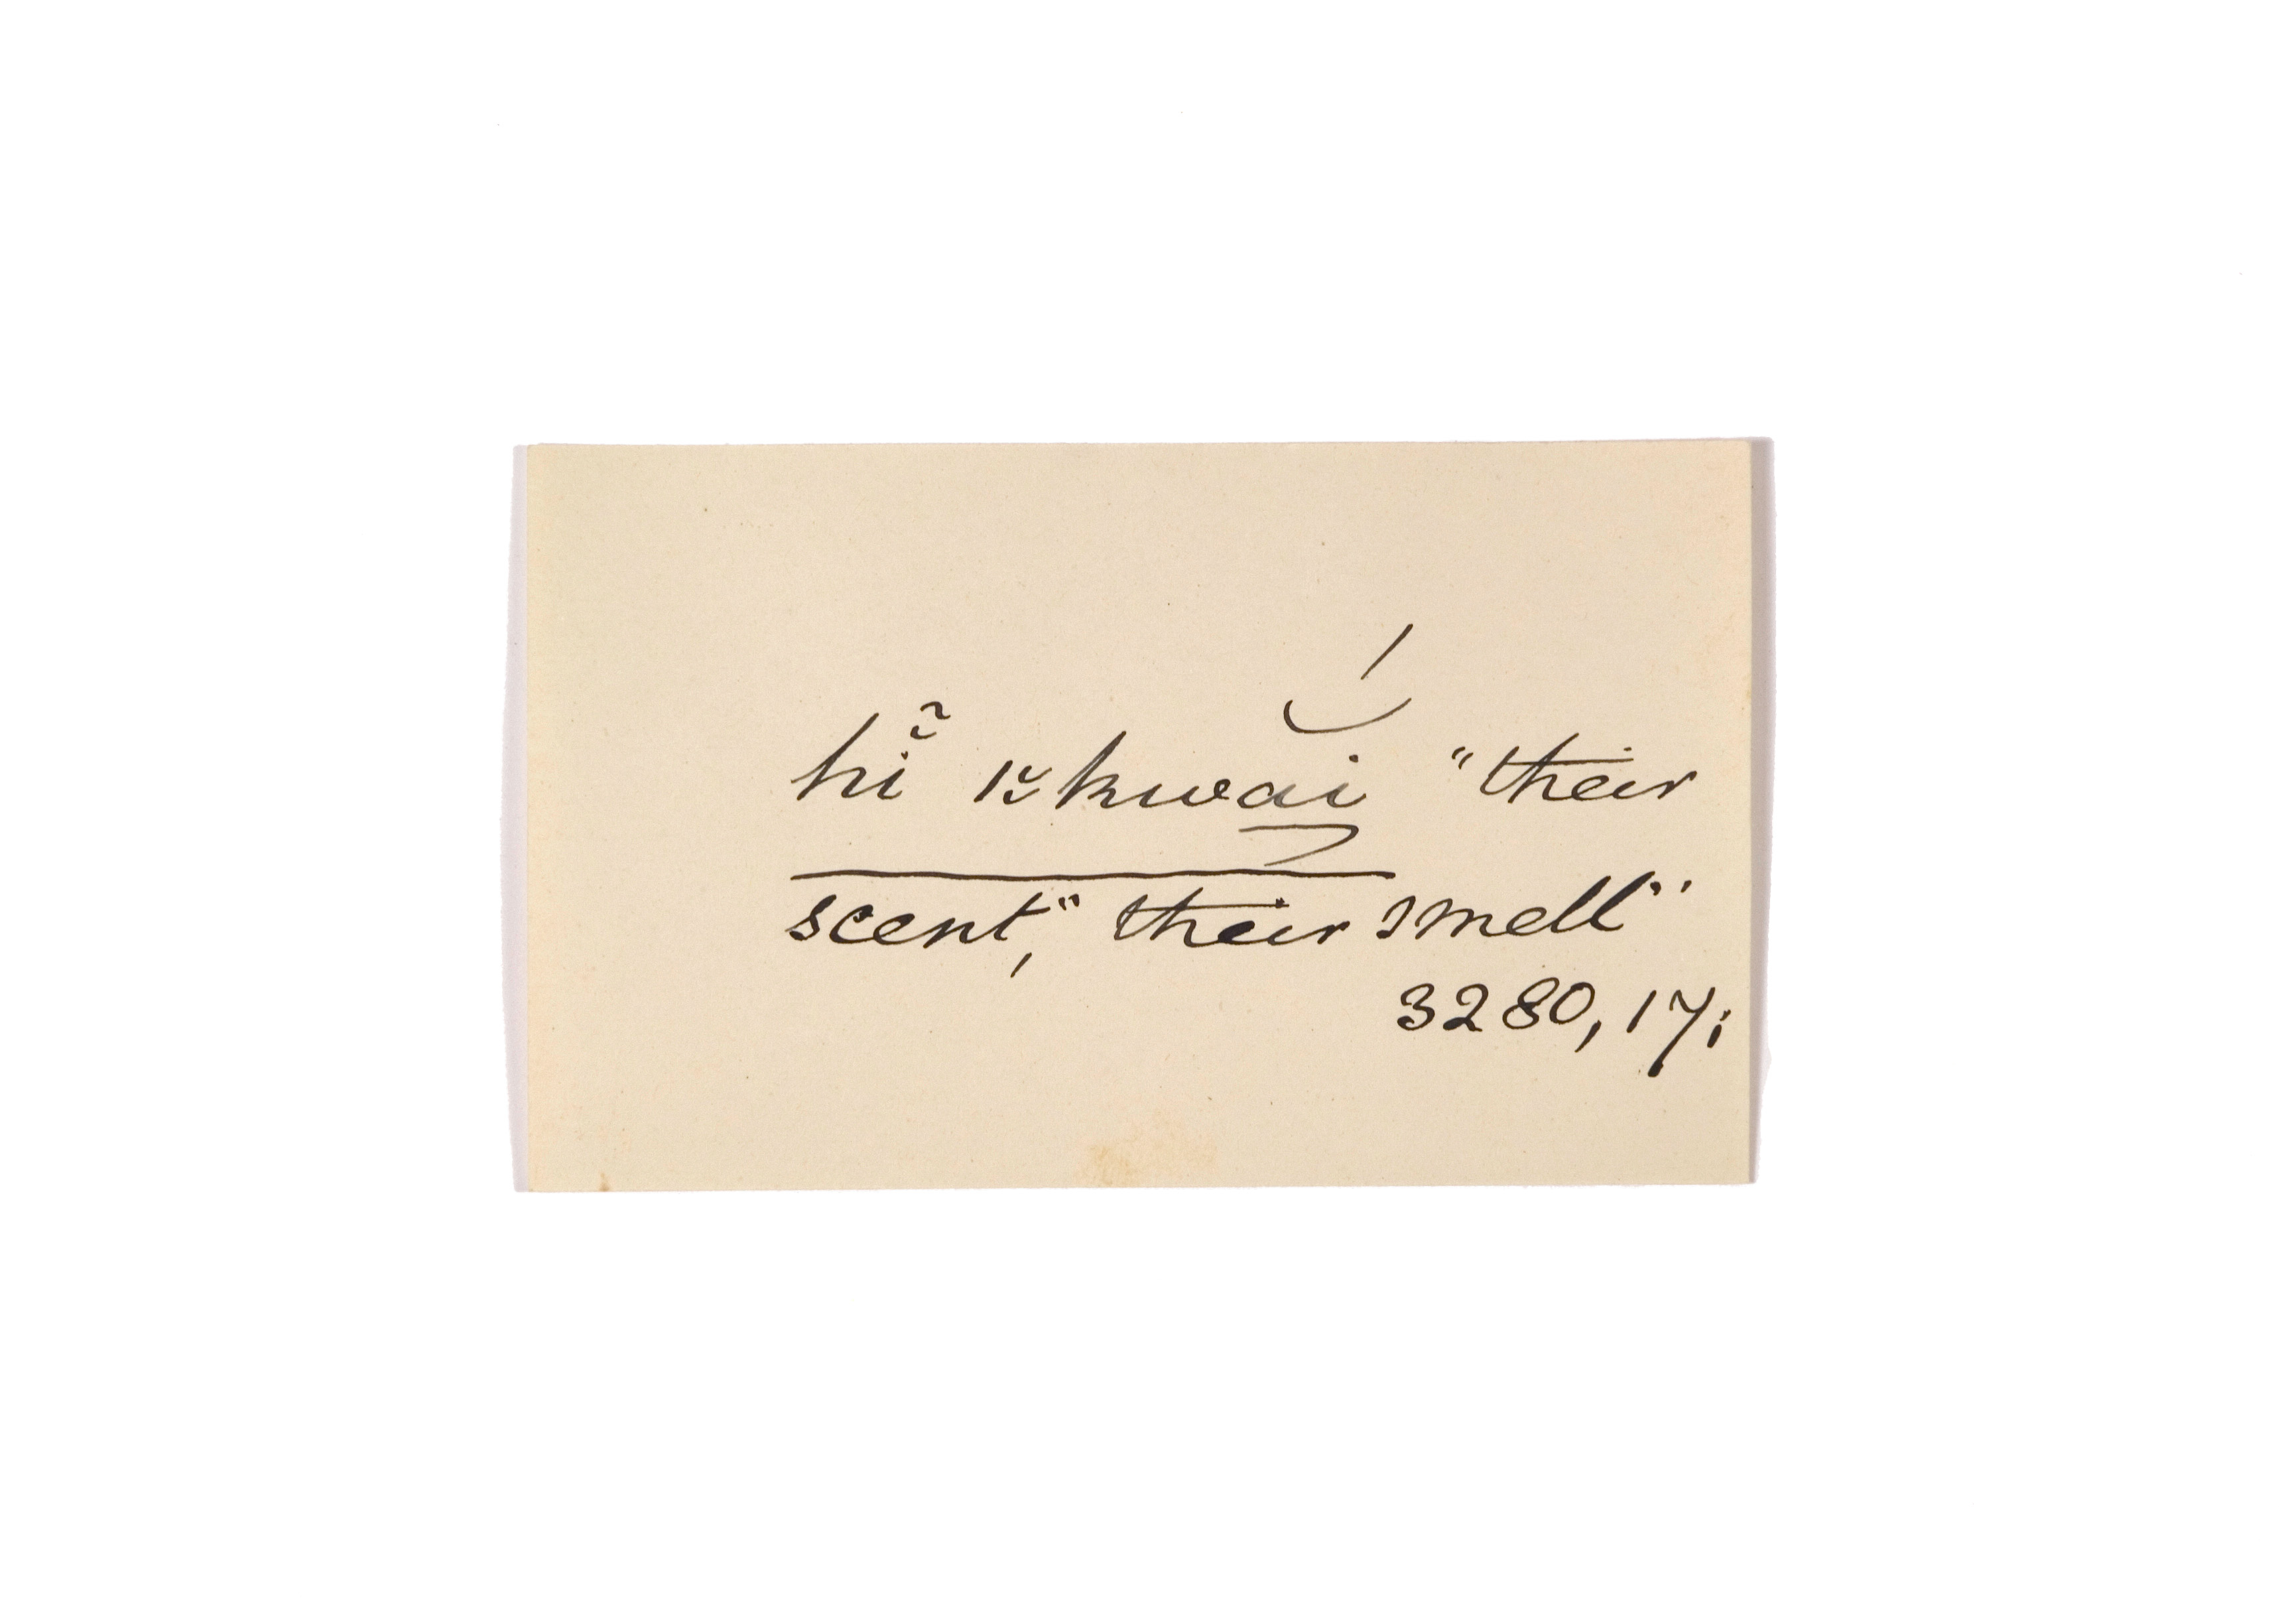 hĩ ıškwai "their
scent," their smell"
3280, 17;